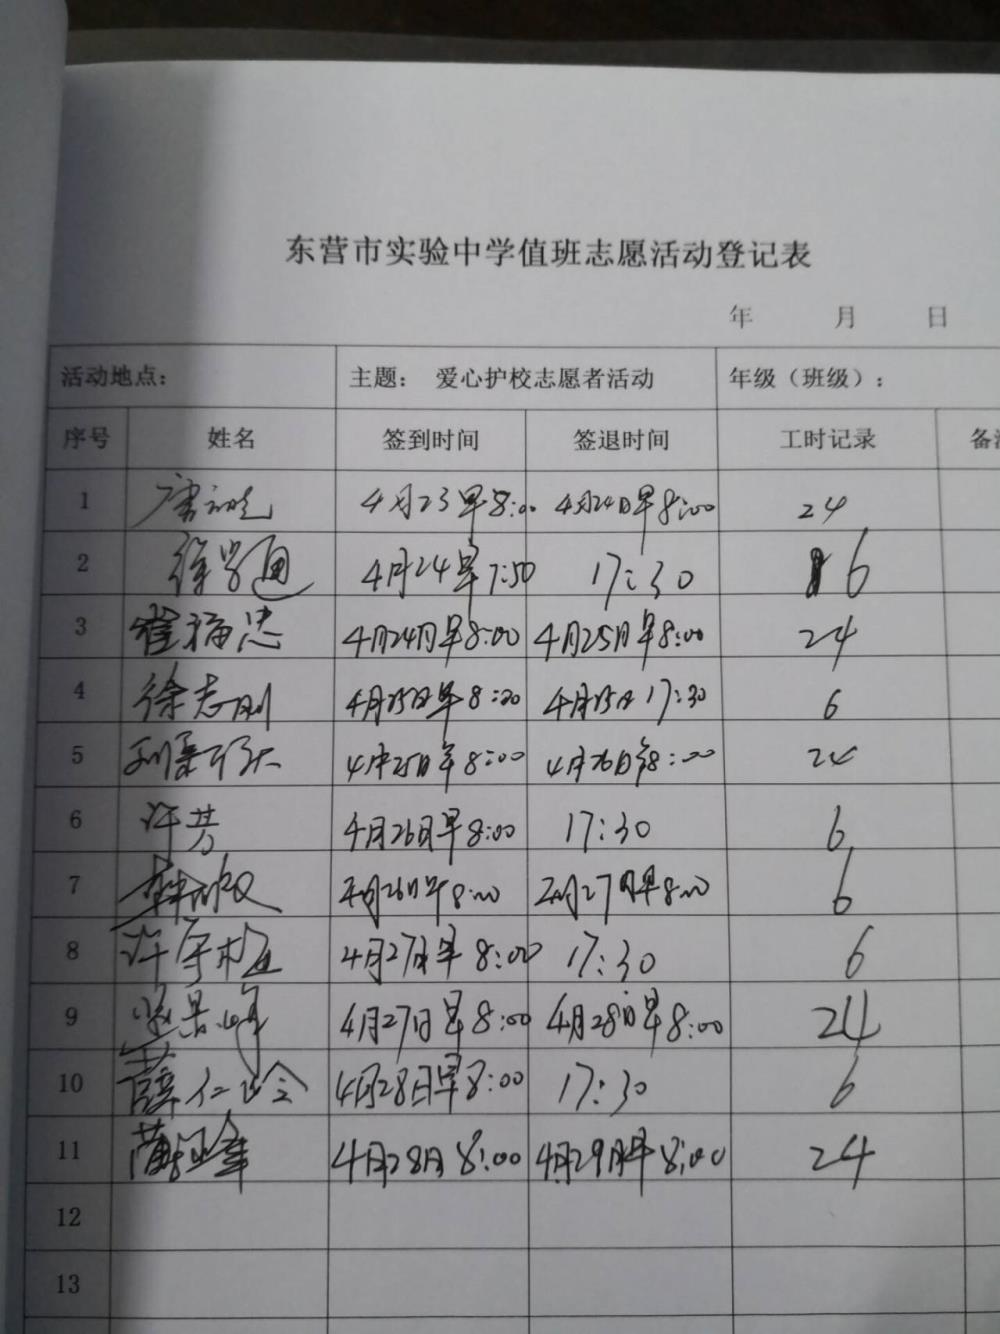 东营市实验中学值班志愿活动登记表
年 月 日
活动地点： 主题： 爱心护校志愿者活动 年级（班级）：
序号 姓名 签到时间 签退时间 工时记录 备
1 4月23早8:00 4月24日早8:00 24
2 徐学通 4月24早7:50 17:30 6
3 崔福忠 4月24日早8:00 4月25日早8:00 24
4 徐志刚 4月25日早8:20 4月25日17:30 6
5 4月25日早8:00 4月26日早8:00 24
6 许芳 4月26日早8:00 17:30 6
7 4月26日早8:00 4月27日早8:00 6
8 4月27日早8:00 17:30 6
9 4月27日早8:00 4月28日早8:00 24
10 薛仁 4月28日早8:00 17:30 6
11 4月28日8:00 4月29日早8:00 24
12
13